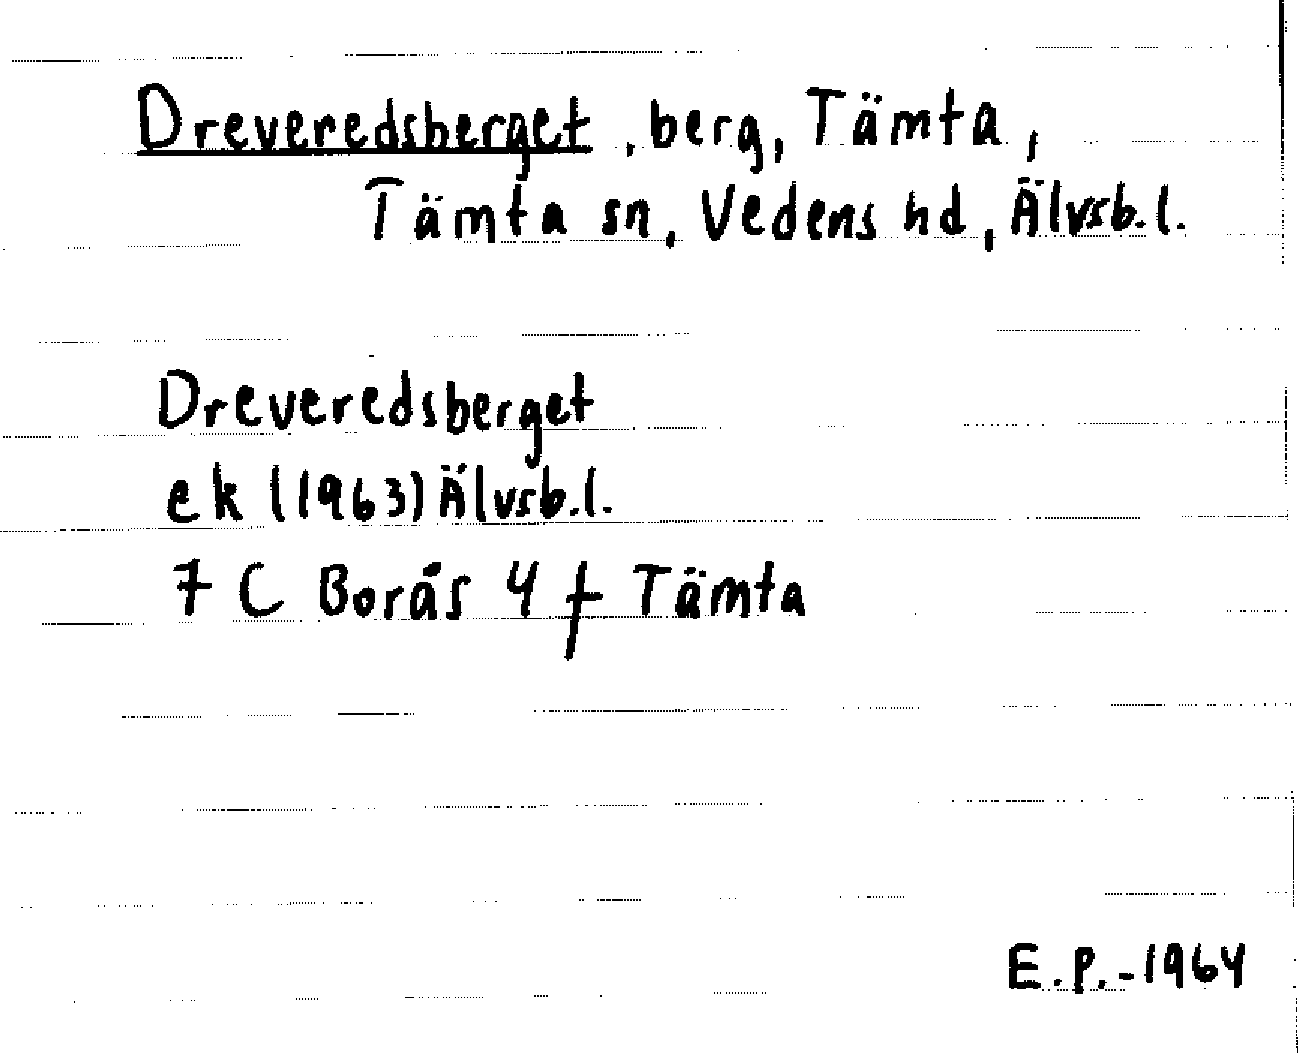 Dreveredsberget, berg, Tämta,
Tämta sn, Vedens hd, Älvsb.l.
Dreveredsberget
ek (1963) Älvsb.l.
7 C Borås 4 f Tämta
E.P.-1964